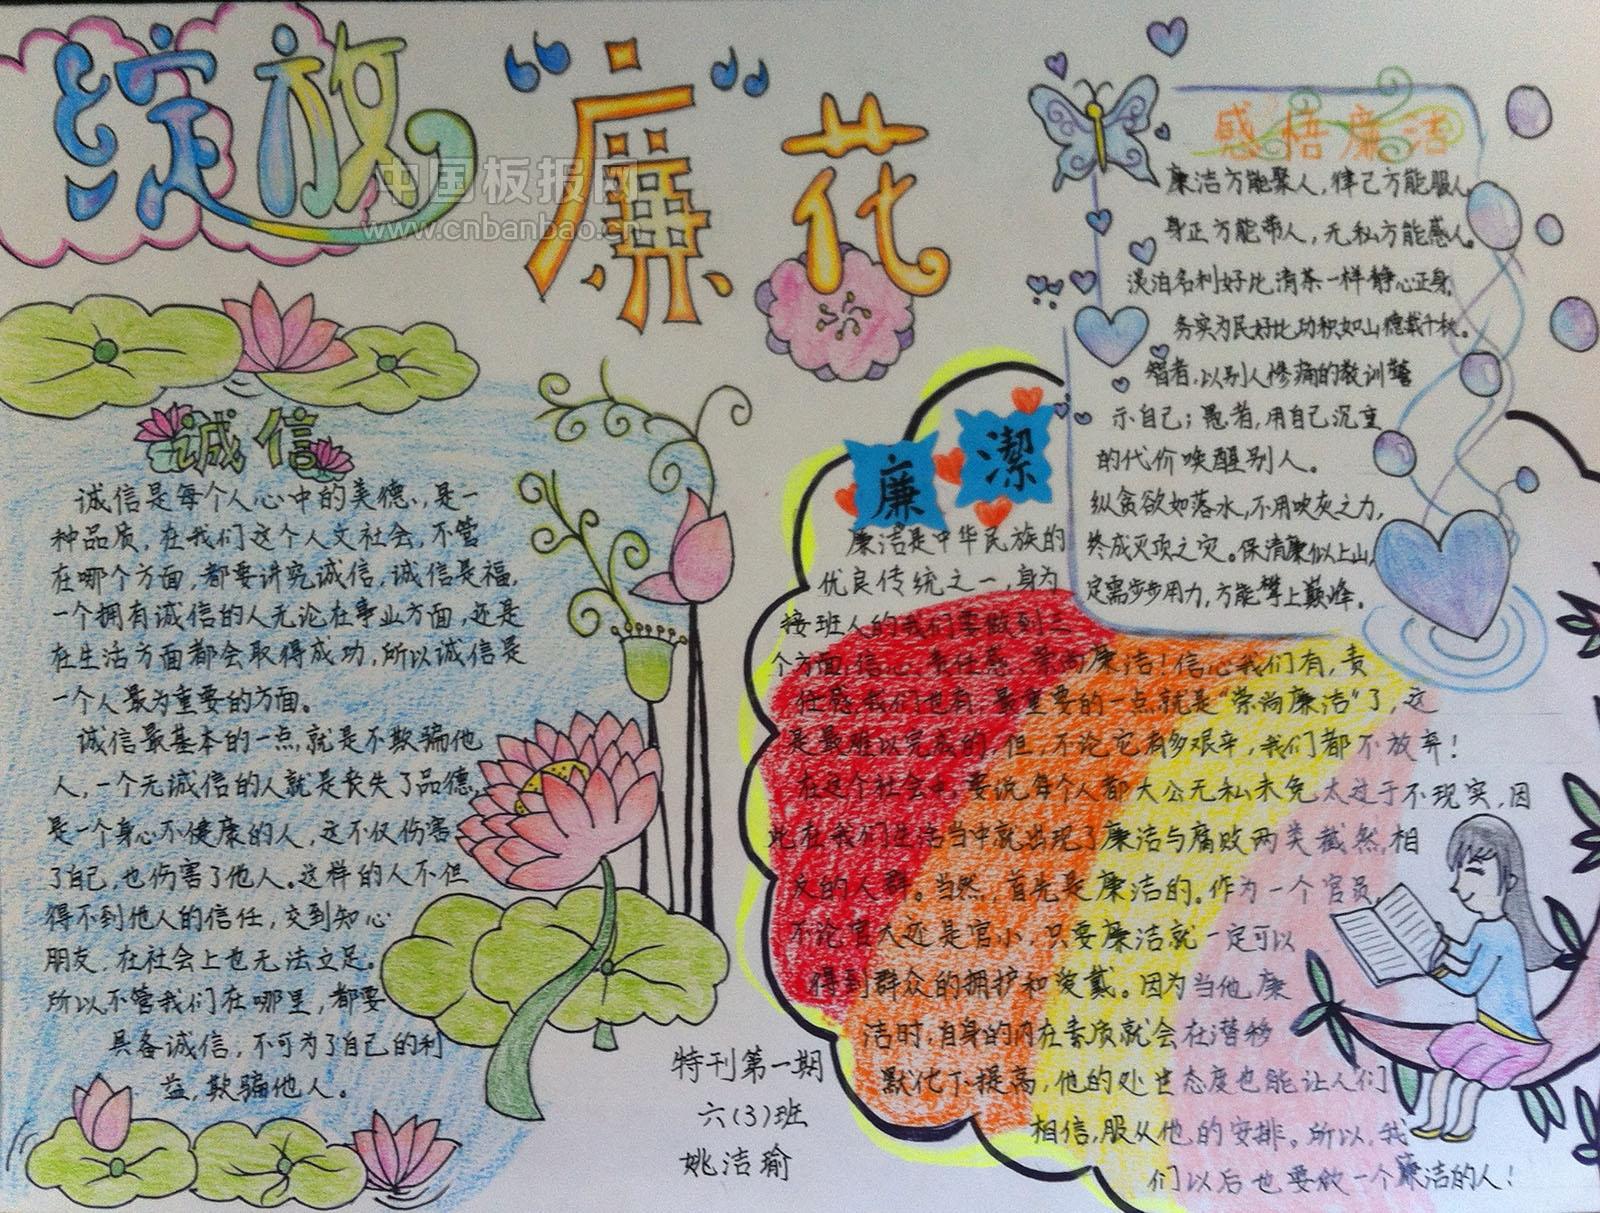 绽放“廉”花
中国板报网
www.cnbanbao.cn
诚信
诚信是每个人心中的美德，是一
种品质，在我们这个人文社会，不管
在哪个方面，都要讲究诚信，诚信是福，
一个拥有诚信的人无论在事业方面，还是
在生活方面都会取得成功，所以诚信是
一个人最为重要的方面。
诚信最基本的一点，就是不欺骗他
人，一个无诚信的人就是丧失了品德，
是一个身心不健康的人，这不仅伤害
了自己，也伤害了他人。这样的人不但
得不到他人的信任，交到知心
朋友，在社会上也无法立足。
所以不管我们在哪里，都要
具备诚信，不可为了自己的利
益，欺骗他人。
特刊第一期
六(3)班
姚洁瑜
感悟廉洁
廉洁方能聚人，律己方能服人，
身正方能带人，无私方能感人。
淡泊名利好比清茶一样静心正身，
务实为民好比功积如山德载千秋。
智者，以别人惨痛的教训警
示自己；愚者，用自己沉重
的代价唤醒别人。
纵贪欲如落水，不用吹灰之力，
终成灭顶之灾。保清廉似上山，
定需步步用力，方能攀上巅峰。
廉潔
廉洁是中华民族的
优良传统之一，身为
接班人的我们要做到三
个方面，信心、责任感、崇尚廉洁！信心我们有，责
任感我们也有，最重要的一点就是“崇尚廉洁”了，这
是最难以完成的，但，不论它有多艰辛，我们都不放弃！
在这个社会中，要说每个人都大公无私未免太过于不现实，因
此在我们生活当中就出现了廉洁与腐败两类截然相
反的人群。当然，首先是廉洁的。作为一个官员，
不论官大还是官小，只要廉洁就一定可以
得到群众的拥护和爱戴。因为当他廉
洁时，自身的内在素质就会在潜移
默化下提高，他的处世态度也能让人们
相信，服从他的安排。所以，我
们以后也要做一个廉洁的人！